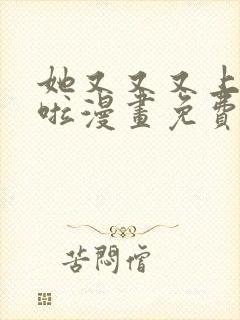 她又又又上
啦漫畫免費
苦悶僧